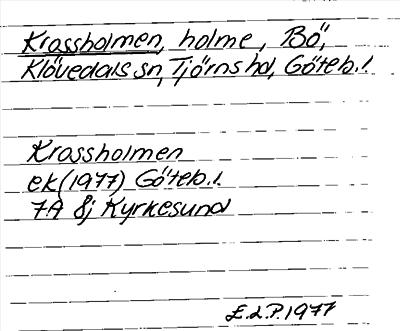 Krossholmen, holme, Bö,
Klövedals sn, Tjörns hd, Göteb. l.
Krossholmen
ek (1977) Göteb. l.
7A 8j Kyrkesund
E.L.P. 1977